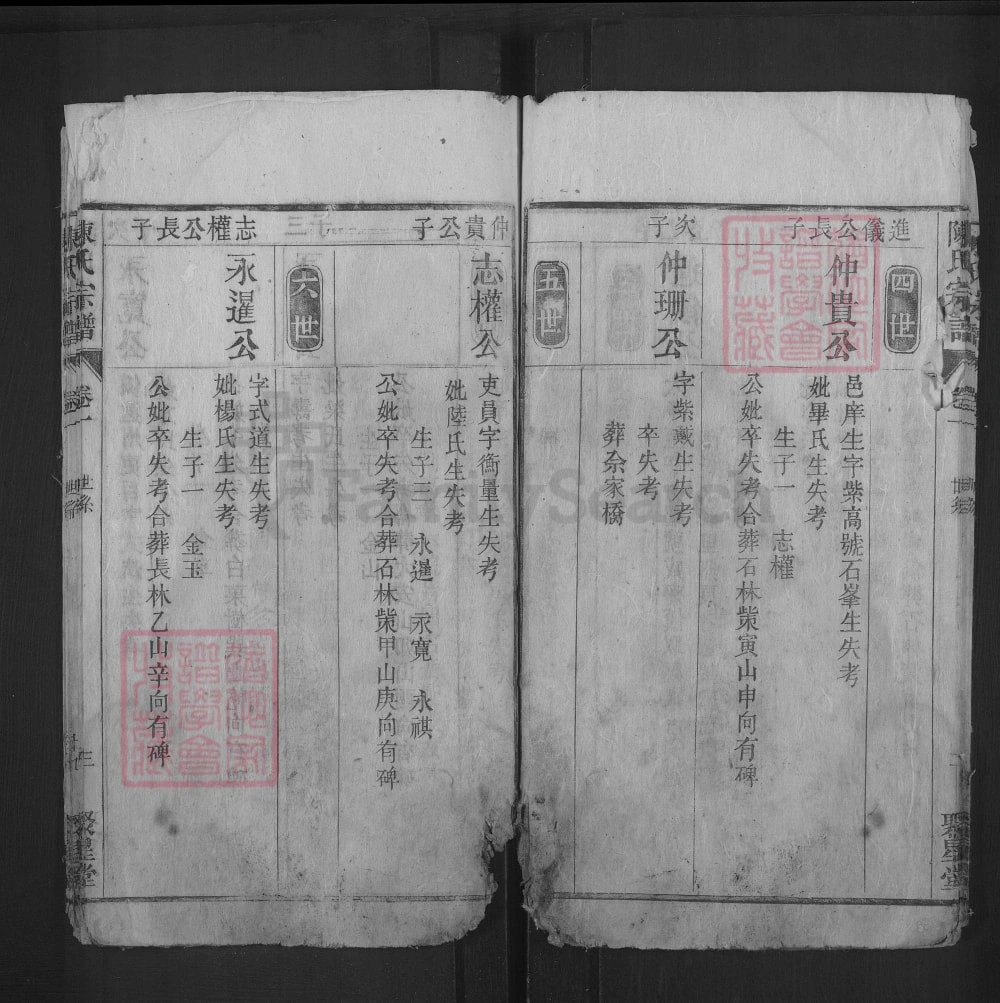 陳氏宗譜
卷一
世系
聚星堂
四世
進儀公長子
仲貴公
邑庠生字紫高號石峯生失考
妣畢氏生失考
生子一 志權
公妣卒失考合葬石林柴寅山申向有碑
次子
仲珊公
字紫戴生失考
卒失考
葬佘家橋
五世
仲貴公子
志權公
吏員字衡量生失考
妣陸氏生失考
生子三 永暹 永寬 永祺
公妣卒失考合葬石林柴甲山庚向有碑
六世
志權公長子
永暹公
字式道生失考
妣楊氏生失考
生子一 金玉
公妣卒失考合葬長林乙山辛向有碑
陳氏宗譜
卷一
世系
三
聚星堂
FamilySearch